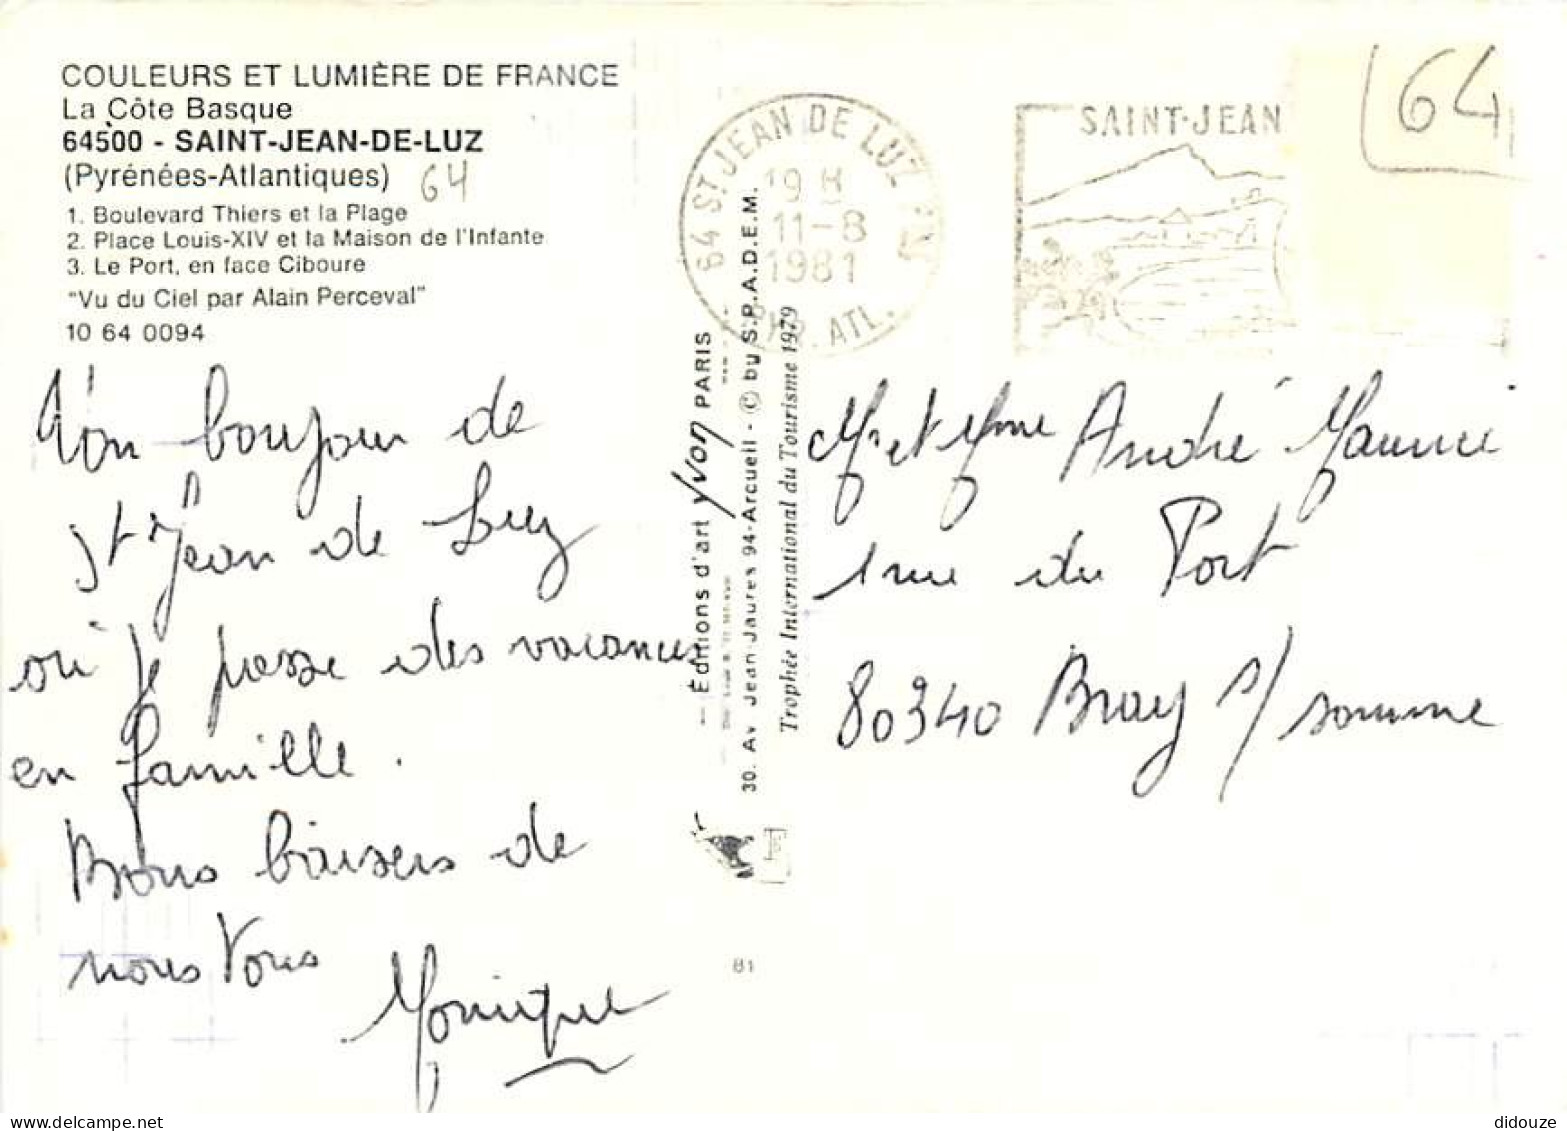 COULEURS ET LUMIÈRE DE FRANCE
La Côte Basque
64500 - SAINT-JEAN-DE-LUZ
(Pyrénées-Atlantiques) 64
1. Boulevard Thiers et la Plage
2. Place Louis-XIV et la Maison de l'Infante
3. Le Port, en face Ciboure
"Vu du Ciel par Alain Perceval"
10 64 0094
Un bonjour de
St Jean de Luz
où je passe des vacances
en famille.
Bons baisers de
nous Tous
Monique
Éditions d'art Yvon PARIS
30. Av Jean-Jaurès 94-Arcueil - © by S.P.A.D.E.M.
Trophée International du Tourisme 1979
81
64 ST JEAN DE LUZ
19 H
11-8
1981
ATL.
SAINT-JEAN
64
Mr et Mme André Maurice
1 rue du Port
80340 Bray s/ somme
delcampe.net
didouze